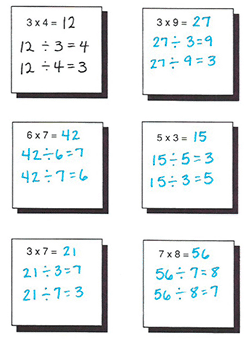 3 x 4 = 12
12 ÷ 3 = 4
12 ÷ 4 = 3
3 x 9 = 27
27 ÷ 3 = 9
27 ÷ 9 = 3
6 x 7 = 42
42 ÷ 6 = 7
42 ÷ 7 = 6
5 x 3 = 15
15 ÷ 5 = 3
15 ÷ 3 = 5
3 x 7 = 21
21 ÷ 3 = 7
21 ÷ 7 = 3
7 x 8 = 56
56 ÷ 7 = 8
56 ÷ 8 = 7